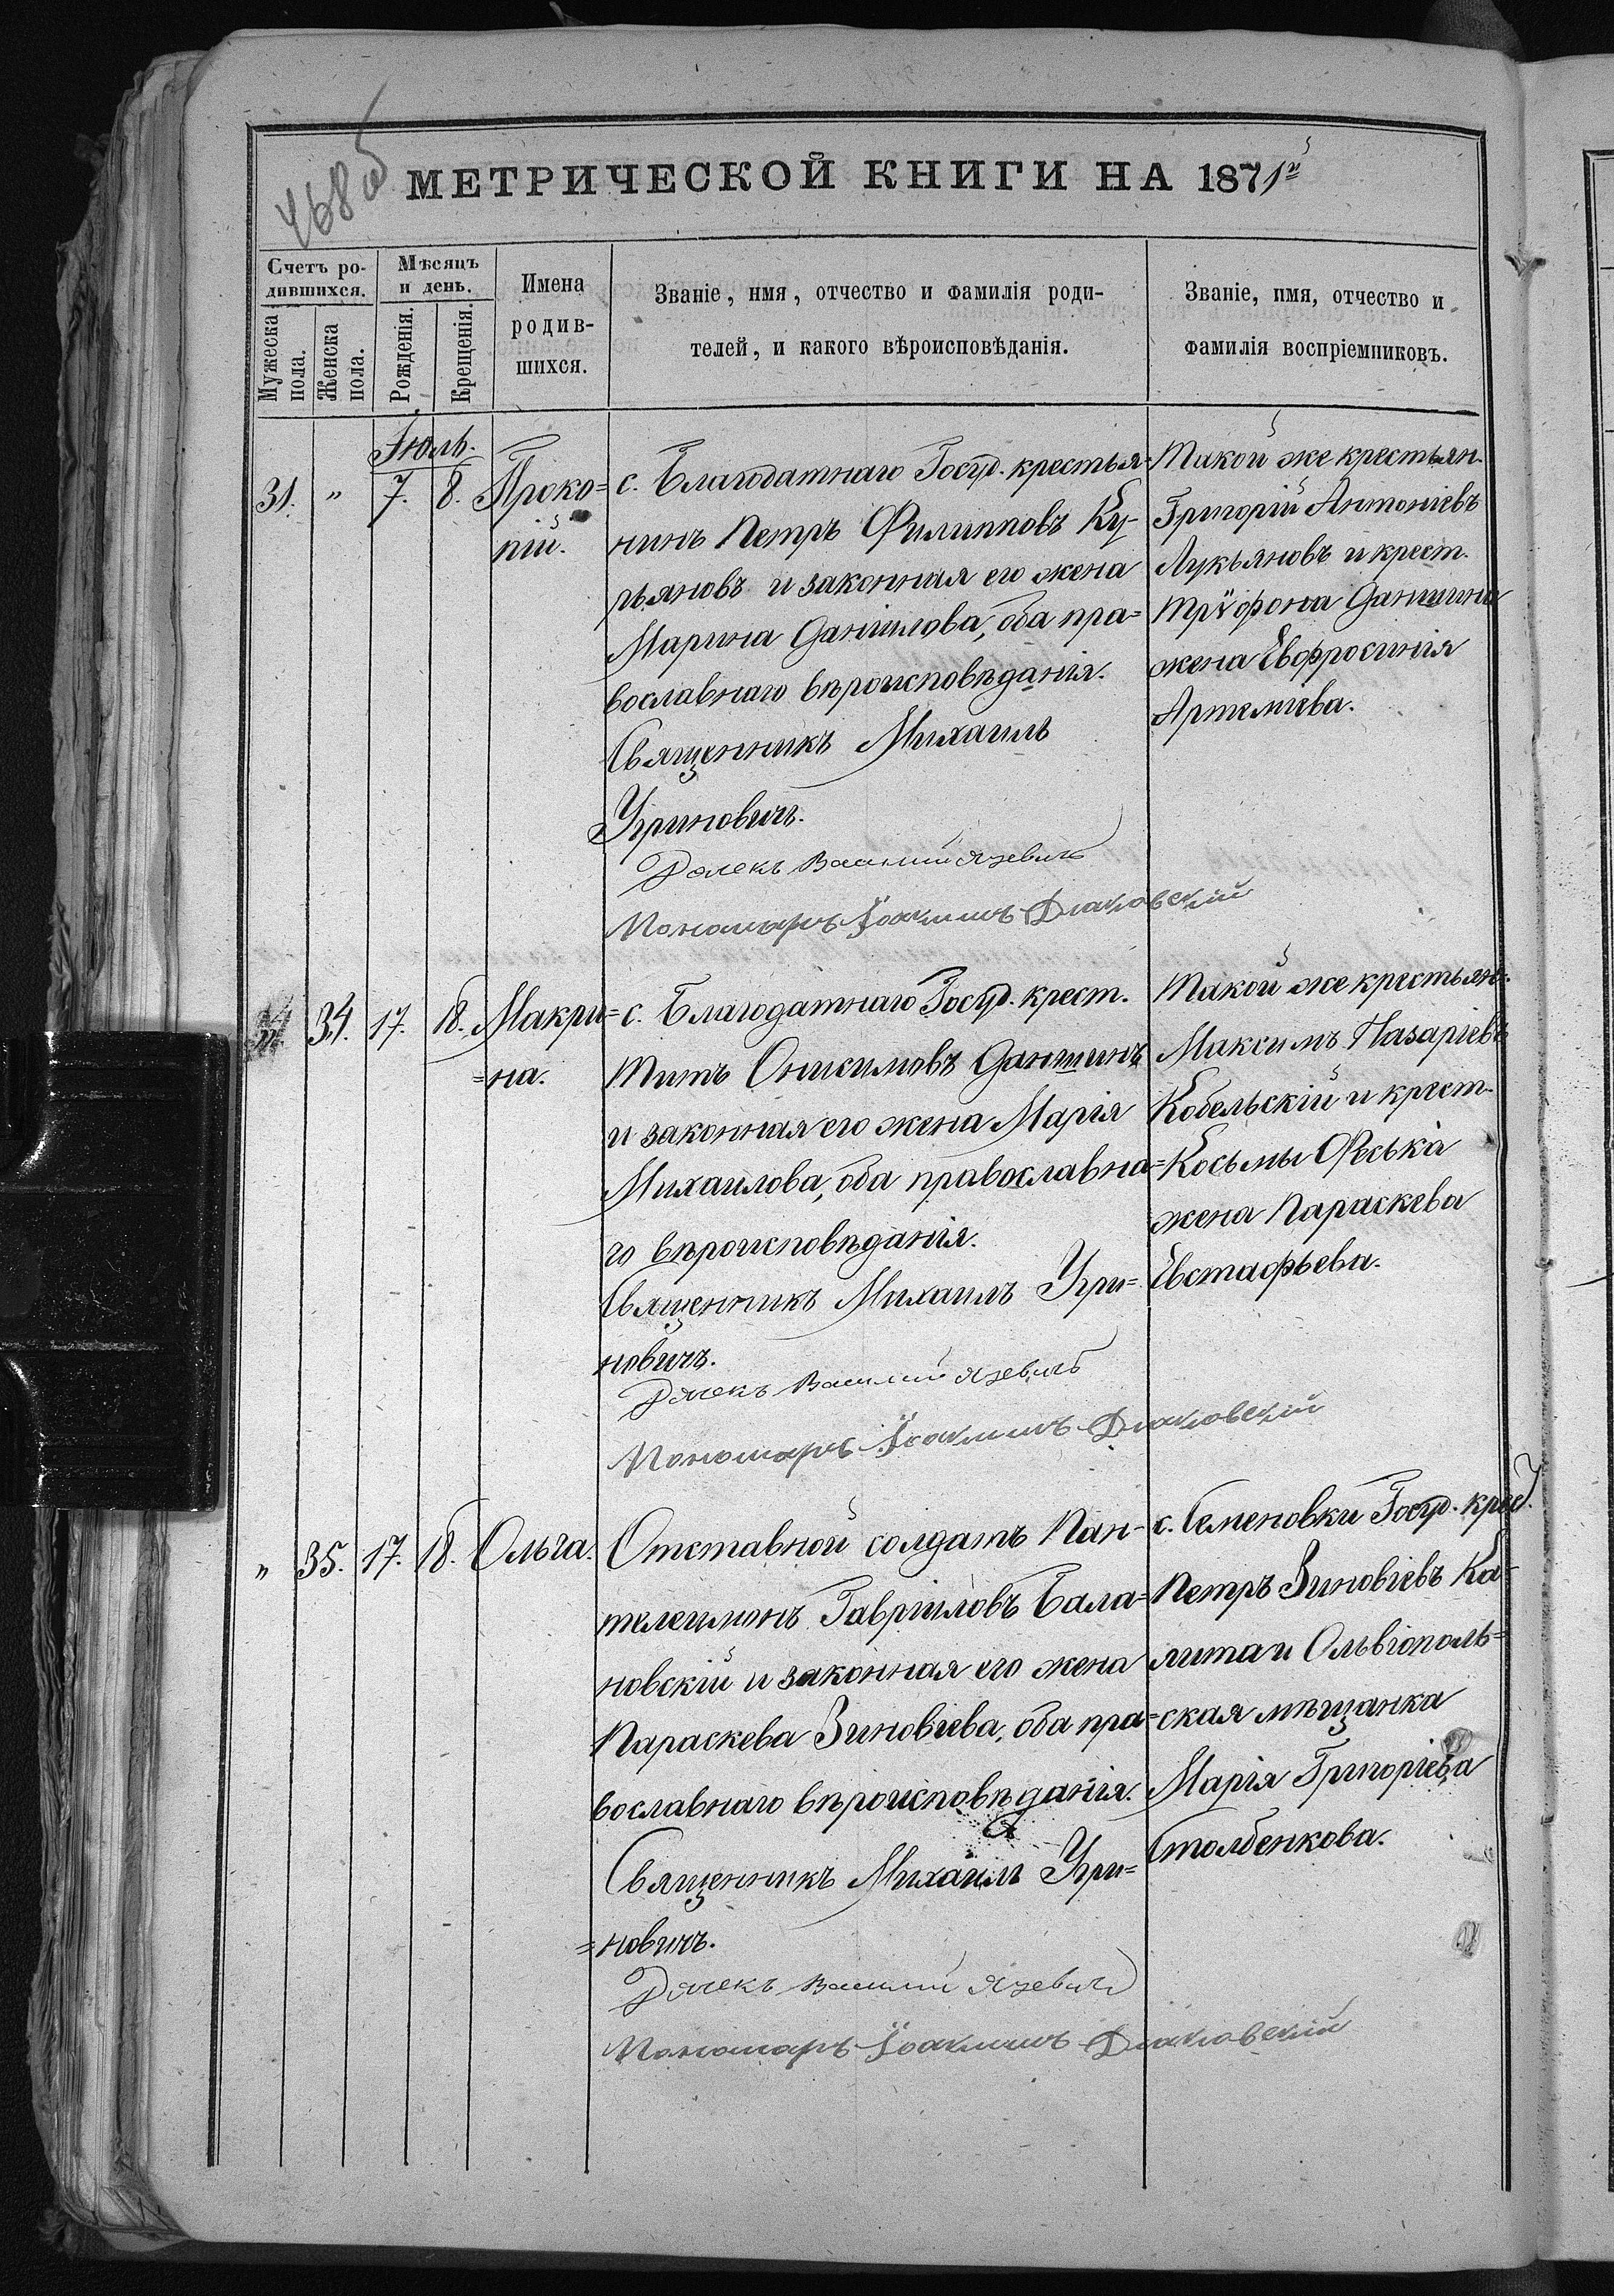 468об
МЕТРИЧЕСКОЙ КНИГИ НА 1871й
Счетъ ро-
дившихся.
Мужеска
пола.
Женска
пола.
Мѣсяцъ
и день.
Рожденія.
Крещенія.
Имена
родив-
шихся.
Званіе, имя, отчество и фамилія роди-
телей, и какого вѣроисповѣданія.
Званіе, имя, отчество и
фамилія воспріемниковъ.
Іюль.
31. " 7. 8. Проко=
пій.
с. Благодатнаго Госуд. крестья-
нинъ Петръ Филипповъ Ку-
рьяновъ и законная его жена
Марина Даніилова, оба пра=
вославнаго вѣроисповѣданія.
Священникъ Михаилъ
Угриновичъ.
Дячекъ Василій Язевичъ
Пономарь Іоакимъ Діаковскій
Такой же крестьян.
Григорій Антоніевъ
Лукьяновъ и крест.
Трѵфона Даншина
жена Евфросинія
Артеміева.
34. 17. 18. Макри=
=на.
с. Благодатнаго Госуд. крест.
Титъ Онисимовъ Даншинъ
и законная его жена Марія
Михаилова, оба православна=
го вѣроисповѣданія.
Священникъ Михаилъ Угри=
новичъ.
Дячекъ Василій Язевичъ
Пономарь Іоакимъ Діаковскій
Такой же крестьян.
Максимъ Назаріевъ
Кобельскій и крест.
Косьмы Феська
жена Параскева
Евстафьева.
" 35. 17. 18. Ольга.
Отставной солдатъ Пан-
телеимонъ Гавріиловъ Бала=
новскій и законная его жена
Параскева Зиновіева, оба пра=
вославнаго вѣроисповѣданія.
Священникъ Михаилъ Угри=
=новичъ.
Дячекъ Василій Язевичъ
Пономарь Іоакимъ Діаковскій
с. Семеновки Госуд. крест.
Петръ Зиновіевъ Ка-
лита и Ольвіополь=
ская мѣщанка
Марія Григоріева
Столбенкова.